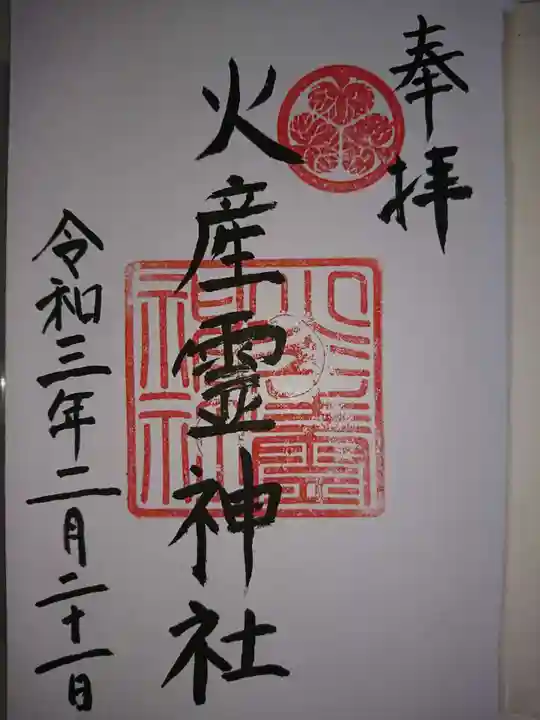 奉拝
火産霊神社
令和三年二月二十一日